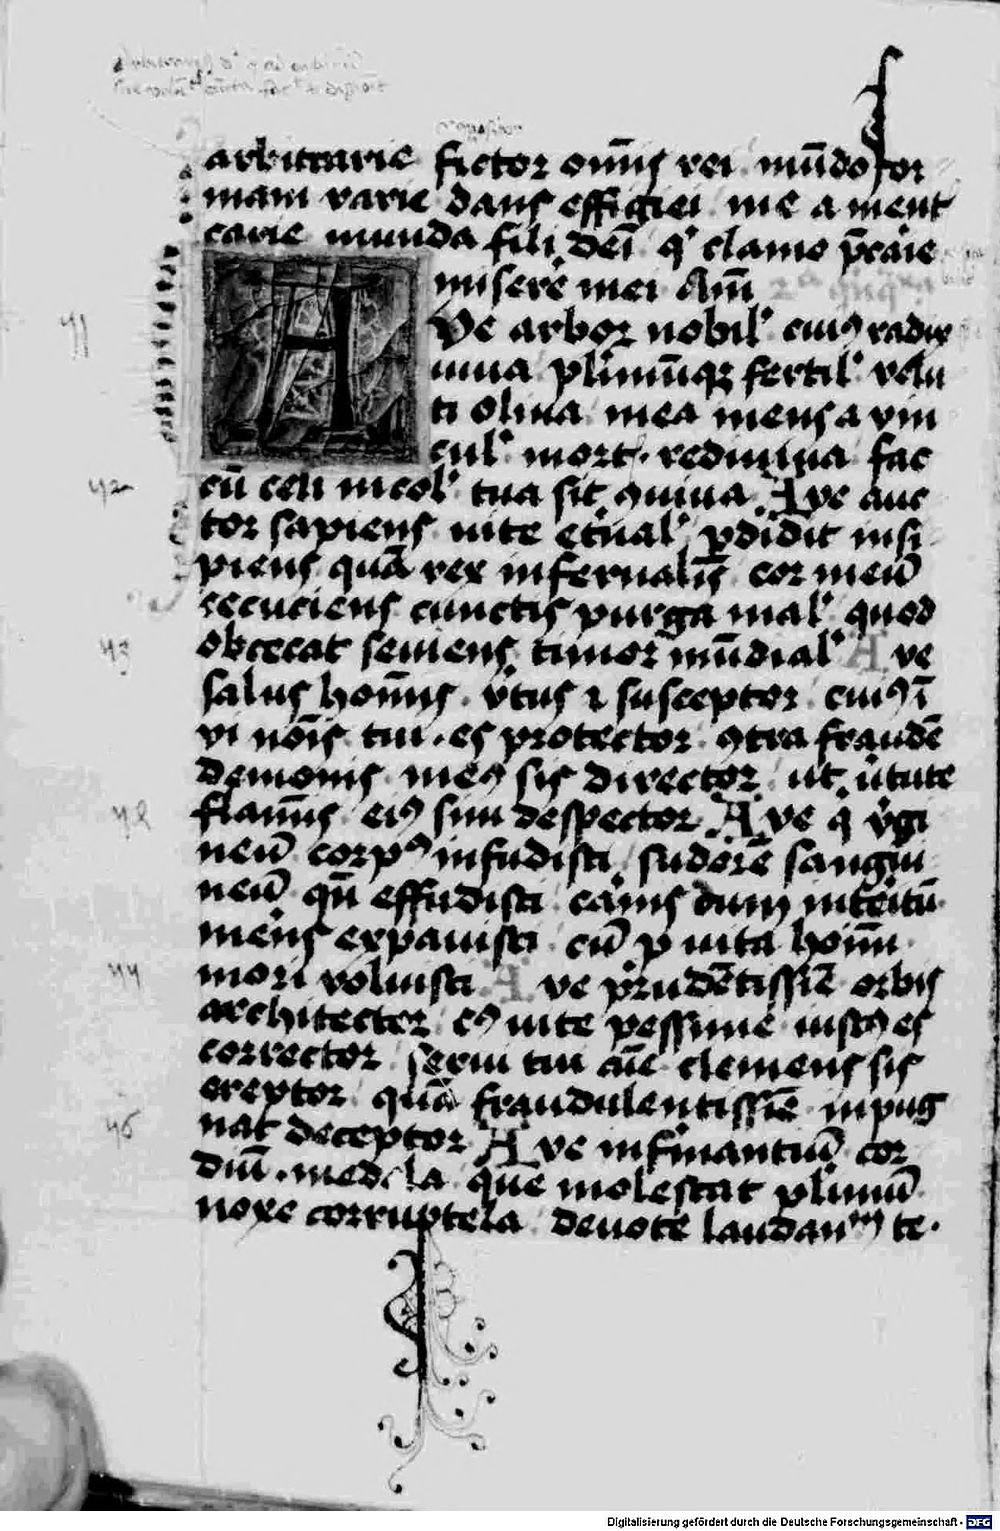 arbitrarie fictor om̄is rei mūdo for
mam varie dans effigiei me a ment
carie munda fili dei qͥ clamo p̄carie
miserē mei Am̄
Ve arbor nobilˢ cuiꝰ radix
uiua plimūqꝫ fertilˢ velu
ti oliua mea mens a vin
culˢ mortˢ rediuiua fac
cū celi incolˢ tua sit ꝯuiua Ave auc
tor sapiens uite etn̄alˢ ꝑdidit insi
piens quā rex infernalis cor meū
cecuciens cunctis purga malˢ quod
obcecat seuiens timor mūdialˢ Ave
salus hoīnis v̓tus ⁊ susceptor cuiꝰ ī
vi nōis tui es protector ꝯtra fraudē
demonis meꝰ sis director ut v̓tute
flaminis eiꝰ sim despector Ave qͥ v̓gi
neū corpꝰ infudisti sudorē sangui
neū qn̄ effudisti carnis dum interitū
mens expauisti cū p̱ uita homī
mori voluisti Ave prudētissīe orbis
architector cꝰ uite pessime iustꝰ es
corrector serui tui aīe clemens sis
ereptor quā fraudulentissīe inpug
nat deceptor Ave infirmantiū cor
diū medela que molestat plimū
noxe corruptela deuote laudamꝰ te
41
42
43
44
46
Digitalisierung gefördert durch die Deutsche Forschungsgemeinschaft - DFG